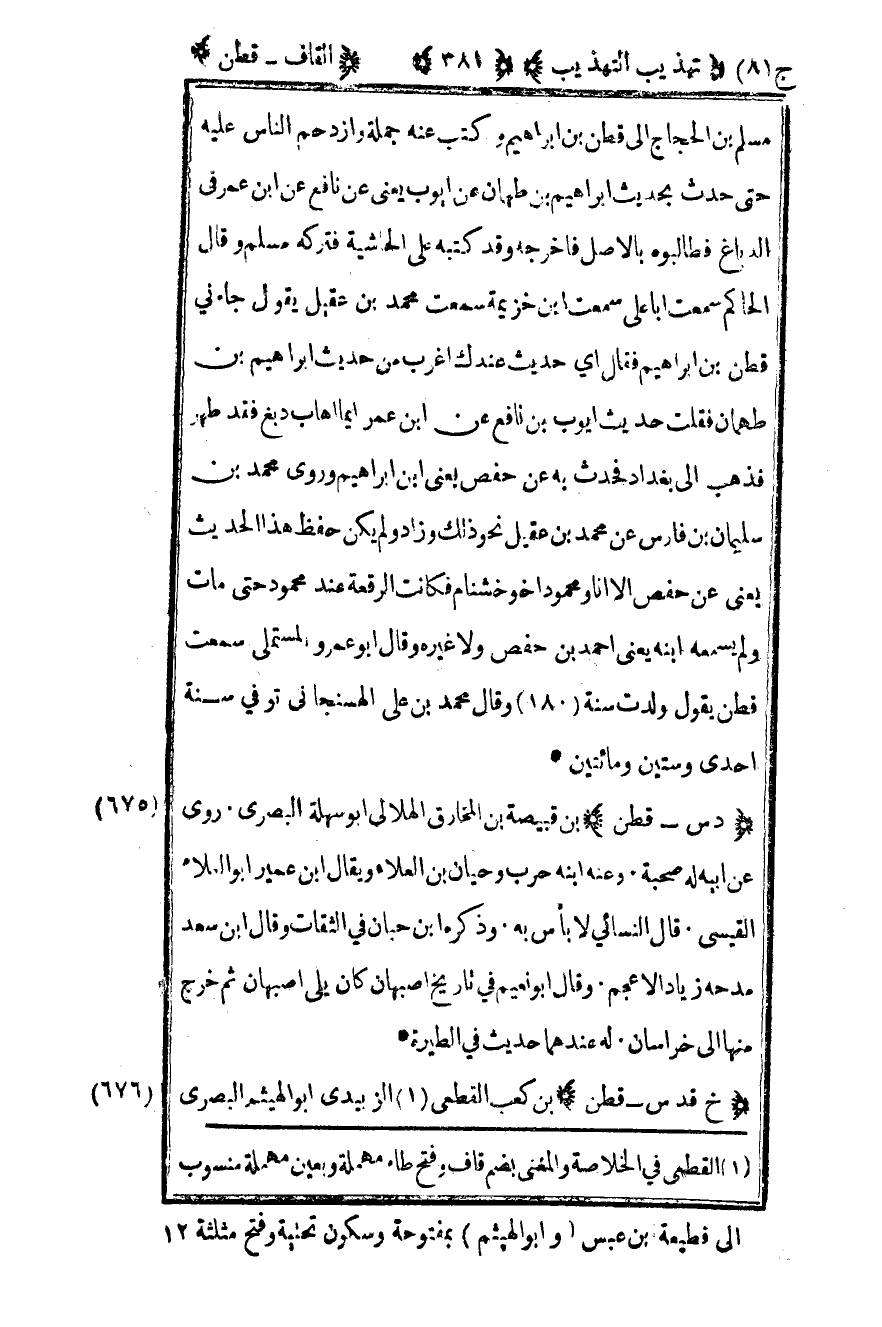 ج (٨) ﴿ تهذيب التهذيب ﴾ ﴿ ٣٨١ ﴾ ﴿ القاف ـ قطن ﴾
مسلم بن الحجاج الى قطن بن ابراهيم و كتب عنه جملة وازدحم الناس عليه
حتى حدث بحديث ابراهيم بن طهمان عن ايوب يعنى عن نافع عن ابن عمر فى
الدباغ فطالبوه بالاصل فاخرجه وقد كتبه على الحاشية فتركه مسلم و قال
الحاكم سمعت ابا على سمعت ابن خزيمة سمعت محمد بن عقيل يقول جاءني
قطن بن ابراهيم فقال اي حديث عندك اغرب من حديث ابراهيم بن
طهمان فقلت حديث ايوب بن نافع عن ابن عمر ايما اهاب دبغ فقد طهر
فذهب الى بغداد فحدث به عن حفص يعنى ابن ابراهيم وروى محمد بن
سليمان بن فارس عن محمد بن عقيل نحو ذلك وزاد ولم يكن حفظ هذا الحديث
يعنى عن حفص الا انا ومحمود اخو خشنام فكانت الرقعة عند محمود حتى مات
ولم يسمعه ابنه يعنى احمد بن حفص ولا غيره وقال ابو عمرو المستملى سمعت
قطن يقول ولدت سنة (١٨٠) وقال محمد بن على الهسنجانى توفي سنة
احدى وستين ومائتين •
﴿ دس ـ قطن ﴾ بن قبيصة بن المخارق الهلالي ابو سهلة البصرى · روى (٦٧٥)
عن ابيه له صحبة · وعنه ابنه حرب وحيان بن العلاء ويقال ابن عمير ابو العلاء
القيسى · قال النسائي لا بأس به · وذكره ابن حبان في الثقات وقال ابن سعد
مدحه زياد الاعجم · وقال ابو نعيم في تاريخ اصبهان كان يلى اصبهان ثم خرج
منها الى خراسان · له عندهما حديث في الطيرة •
﴿ خ قد س ـ قطن ﴾ بن كعب القطعى (١) الزبيدى ابو الهيثم البصرى (٦٧٦)
(١) القطعى في الخلاصة والمغنى بضم قاف وفتح طاء مهملة وبعين مهملة منسوب
الى قطيعة بن عبس (و ابو الهيثم) بمفتوحة وسكون تحتية وفتح مثلثة ١٢